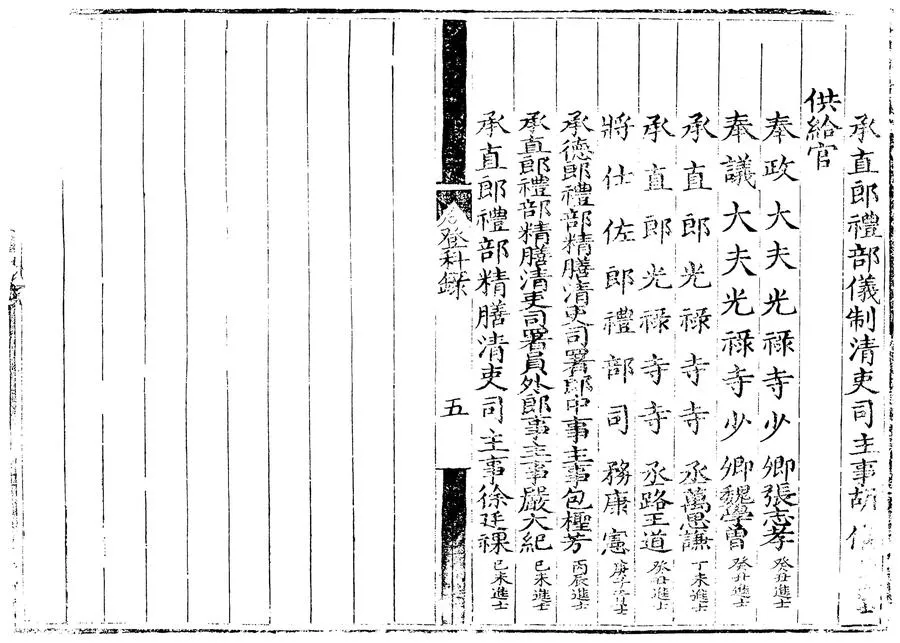 承直郎禮部儀制清吏司主事胡
供給官
奉政大夫光祿寺少卿張志孝 癸丑進士
奉議大夫光祿寺少卿魏學曾 癸丑進士
承直郎光祿寺寺丞萬思謙 丁未進士
承直郎光祿寺寺丞路王道 癸丑進士
將仕佐郎禮部司務康憲 庚子貢士
承德郎禮部精膳清吏司署郎中事主事包檉芳 丙辰進士
承直郎禮部精膳清吏司署員外郎事主事嚴大紀 己未進士
承直郎禮部精膳清吏司主事徐廷祼 己未進士
登科錄
五